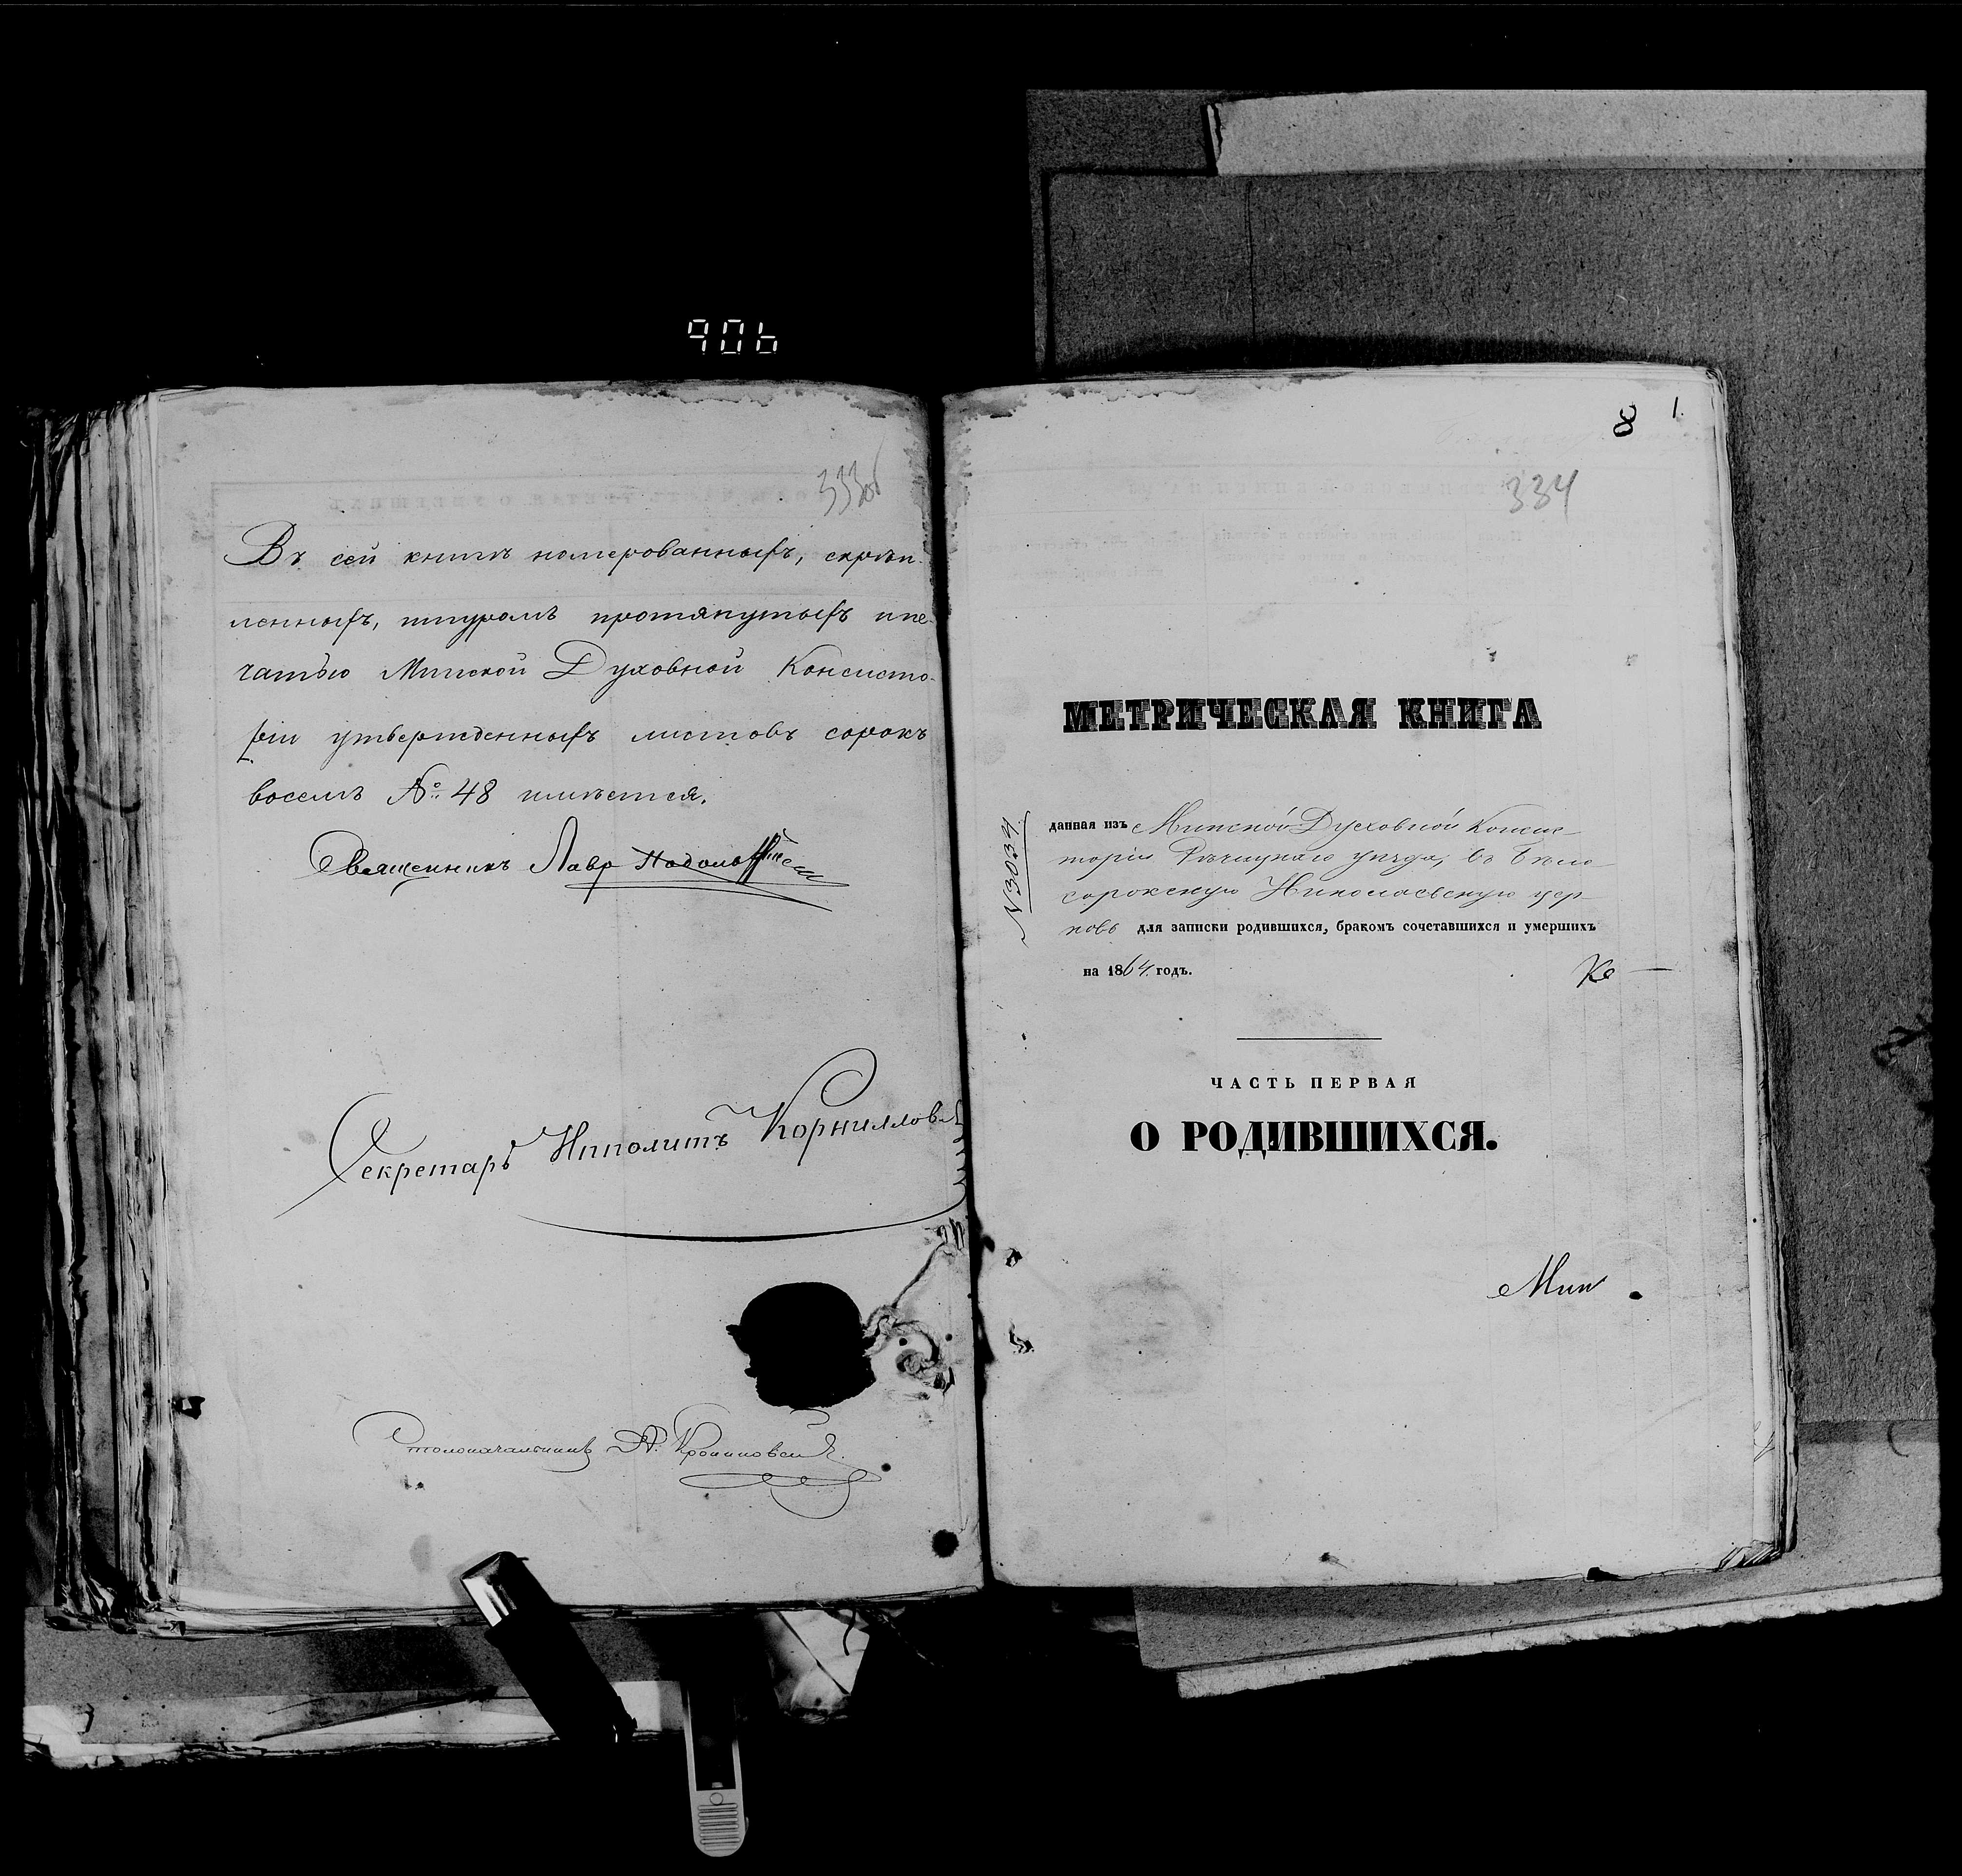 906
333об
Въ сей книгѣ номерованныхъ, скрѣп-
ленныхъ, шнуромъ протянутыхъ и пе-
чатью Минской Духовной Консисто-
ріи утвержденныхъ листовъ сорокъ
восемь № 48 имѣется.
Священникъ Лавр
Секретарь Ипполитъ Корниллов
Столоначальникъ А.
8 1.
334
МЕТРИЧЕСКАЯ КНИГА
№ 3034
данная изъ Минской Духовной Конси-
торіи Рѣчицкаго уѣзда, въ Бѣло-
сорокскую Николаевскую цер-
ковь для записки родившихся, бракомъ сочетавшихся и умершихъ
на 1864 годъ.
Ко —
ЧАСТЬ ПЕРВАЯ
О РОДИВШИХСЯ.
Мин